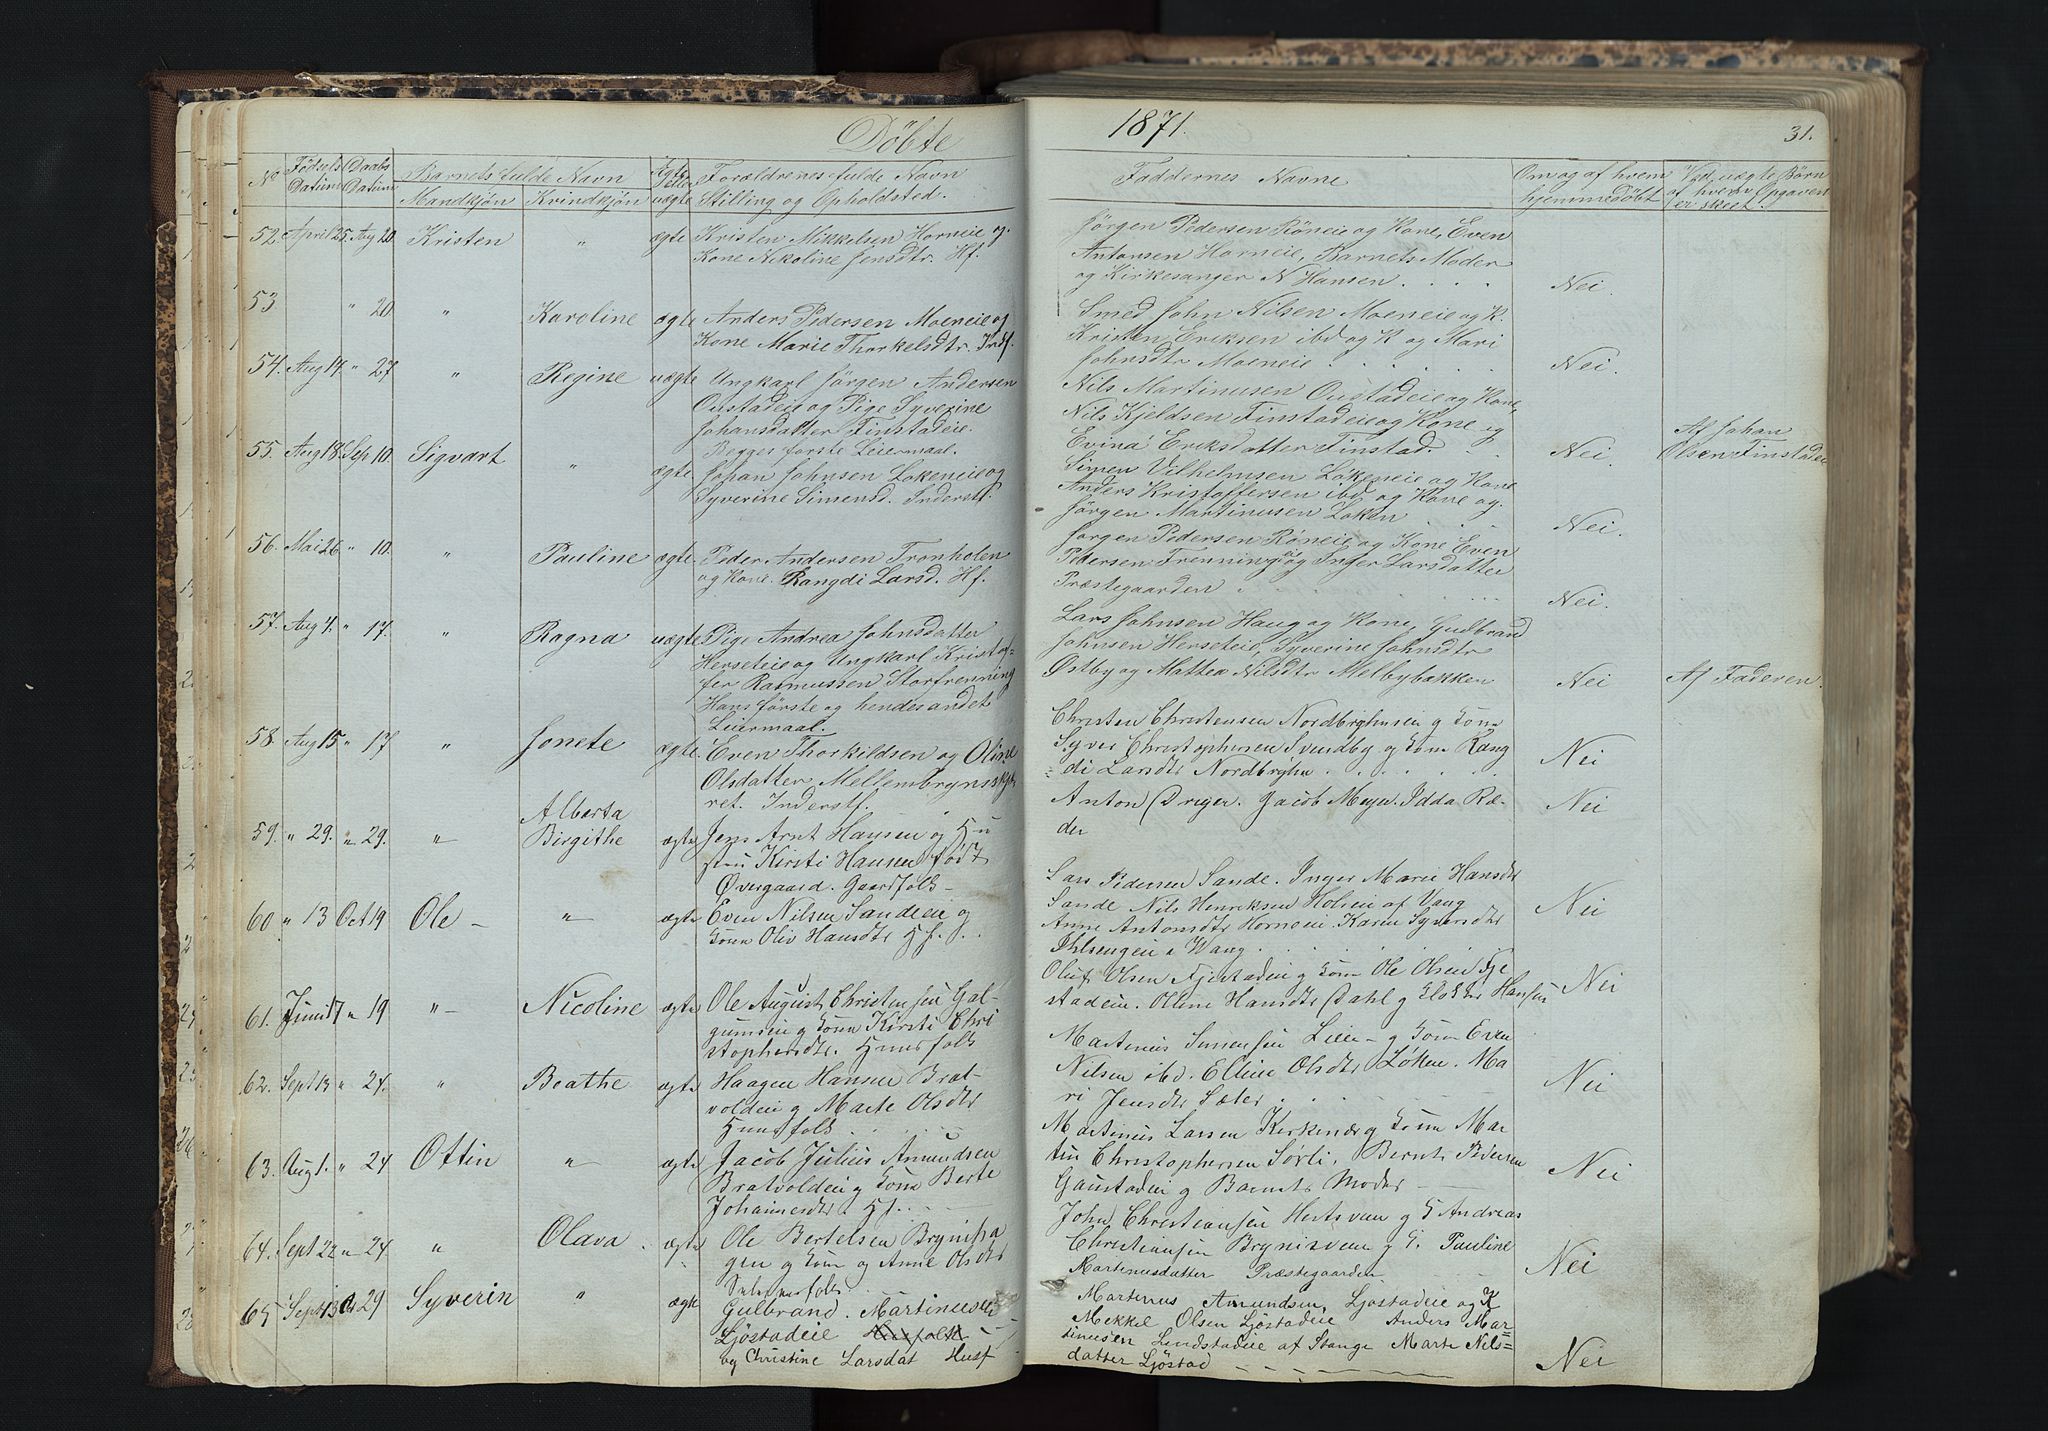 Døbte
1871.
31.
No
Fødsels Datum
Daabs Datum
Barnets fulde Navn
Mandkjøn
Kvindkjøn
Ægte eller uægte
Forældrenes fulde Navn
Stilling og Opholdsted.
Faddernes Navne
Om og af hvem hjemmedøbt
Ved uægte Børn af hvem Opgaven er skeet.
52. April 25. Aug 20. Kristen " ægte Kristen Mikkelsen Horneie og
Kone Nikoline Jensdtr. Hf.
Jørgen Pedersen Röneie og Kone, Even
Antonsen Horneie, Barnets Moder
og Kirkesanger N Hansen . . . . Nei.
53 " 20. " Karoline ægte Anders Pedersen Moeneie og
Kone Marie Thorkelsdtr. Indf.
Smed John Nilsen Moeneie og K.
Kristen Eriksen ibd og K og Mari
Johnsdtr Moeneie . . . . Nei.
54. Aug 14. " 27 " Regine uægte Ungkarl Jørgen Andersen
Oustadeie og Pige Syverine
Johansdatter Finstadeie.
Begges første Leiermaal.
Nils Martinusen Oustadeie og Kone,
Nils Kjeldsen Finstadeie og Kone og
Evina Eriksdatter Finstad. . . Nei. Af Johan
Olsen Finstadeie
55. Aug 18. Sep 10. Sigvart " ægte Johan Johnsen Lökeneie og
Syverine Simensd. Inderstf.
Simen Vilhelmsen Lökeneie og Kone
Anders Kristoffersen ibd og Kone og
Jörgen Martinusen Löken . . . Nei.
56. Mai 26 " 10. " Pauline ægte. Peder Andersen Tronholen
og Kone. Rangdi Larsd. Hf.
Jørgen Pedersen Röneie og Kone Even
Pedersen Frenningei og Inger Larsdatter
Præstegaarden . . . . Nei.
57. Aug 4. " 17. " Ragna uægte Pige Andrea Johnsdatter
Herseteie og Ungkarl Kristof-
fer Rasmussen Storfrenning
Hans første og hendes andet
Leiermaal.
Lars Johnsen Haug og Kone, Gudbrand
Johnsen Herseteie, Syverine Johnsdtr
Østby og Mattea Nilsdtr Melbybakken Nei Af Faderen.
58. Aug 15 " 17 " Jonete ægte. Even Thorkildsen og Oline
Olsdatter Mellembryns
ret. Inderstf.
Christen Christensen Nordbryhnsen g Kone
Syver Christophersen Svendby g Kone Rang
di Larsdtr Nordbryhn . . . . Nei
59. " 29. " 29. " Alberta
Birgithe ægte Jens Arnt Hansen og Hu
stru Kirsti Hansen født
Øvergaard. Gaardfolk -
Anton Dreyer. Jacob Meyer. Idda Ræ-
der Nei
60 " 13 Oct 19 Ole - " ægte Even Nilsen Sandeie og
Kone Oliv Hansdtr H f.
Lars Pedersen Sande. Inger Marie Hansdtr
Sande Nils Henriksen Holsen af Vang
Anne Antonsdtr Horneie. Karen Syversdtr
Ihlsengen i Wang . . . . Nei
61. Juni 17 " 19 " Nicoline ægte Ole August Christensen Gal-
gumseie g Kone Kirsti Chri
stophersdtr. Huusfolk
Oluf Olsen Fjestadeie g Kone Ole Olsen Fje
stadeie. Oline Hansdtr Dahl g Klokker Hansen Nei
62. Sept 13 " 24. " Beathe ægte Haagen Hansen Brat-
voldeie g Marte Olsdtr
Huusfolk
Martinus Simensen Lieie g Kone Even
Nilsen ibd. Elline Olsdtr Løken. Ma
ri Jensdtr Sæter . . . Nei
63. Aug 1. " 24 Ottin " ægte Jacob Julius Amundsen
Bratvoldeie g Kone Berte
Johannesdtr H f.
Martinus Larsen Kirkenær g Kone Mar
tin Christophersen Sørli, Bernt Pedersen
Gaustadeie g Barnets Moder Nei
64. Sept 22 " 24 " Olava . ægte Ole Bertelsen Brynipa
gen g Kone og Anne Olsdtr
John Christiansen Hertsveen g G Andreas
Christiansen Brynisveen g G. Pauline
Martinusdatter Præstegaarden Nei
65 Sept 13 Oct 29 Syverin " ægte Gulbrand Martinusen
Ljøstadeie Husfolk
og Christine Larsdat Husf
Martinus Amundsen, Ljøstadeie og K
Mekkel Olsen Ljøstadeie Anders Mar=
tinusen Lundstadeie af Stange Marte Nils=
datter Ljøstad Nei